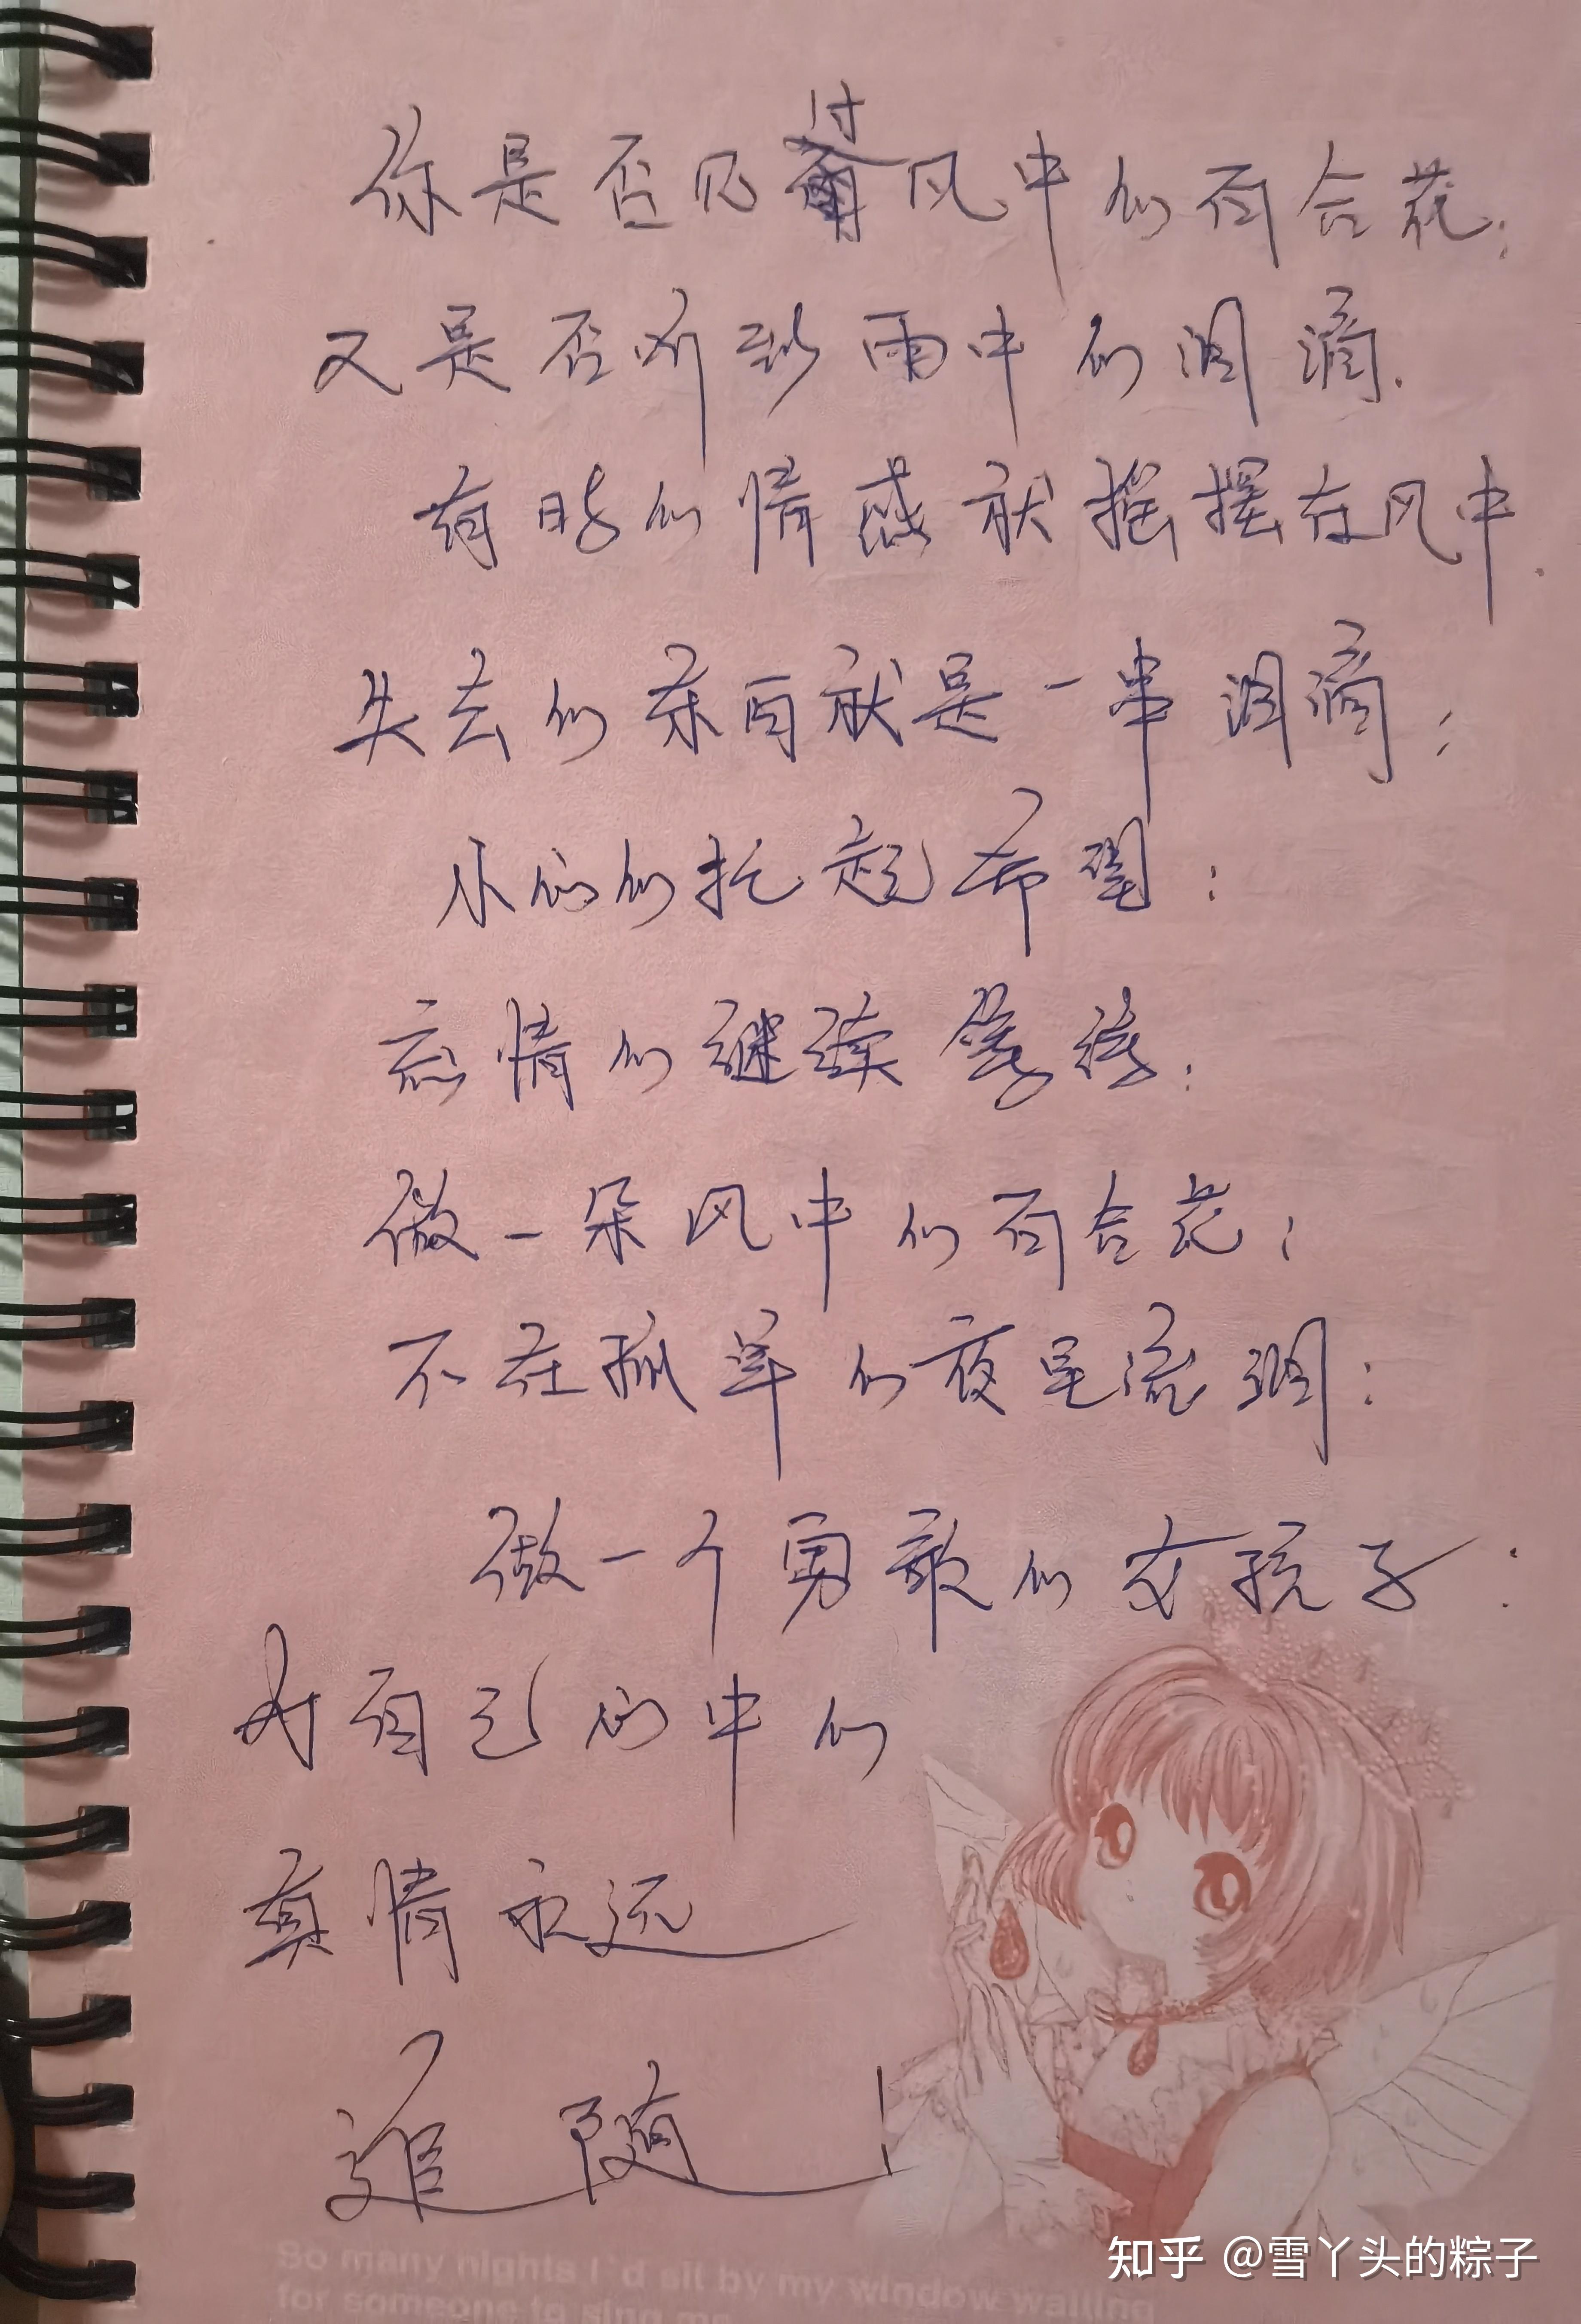 你是否见过风中的百合花；
又是否听到雨中的泪滴.
有时的情感就摇摆在风中.
失去的东西就是一串泪滴；
小心的托起希望；
忘情的继续等待；
做一朵风中的百合花；
不在孤单的夜里流泪；
做一个勇敢的女孩子；
为自己的中的
真情永远
追随！
So many nights I'd sit by my window waiting
for someone to sing me
知乎 @雪丫头的粽子